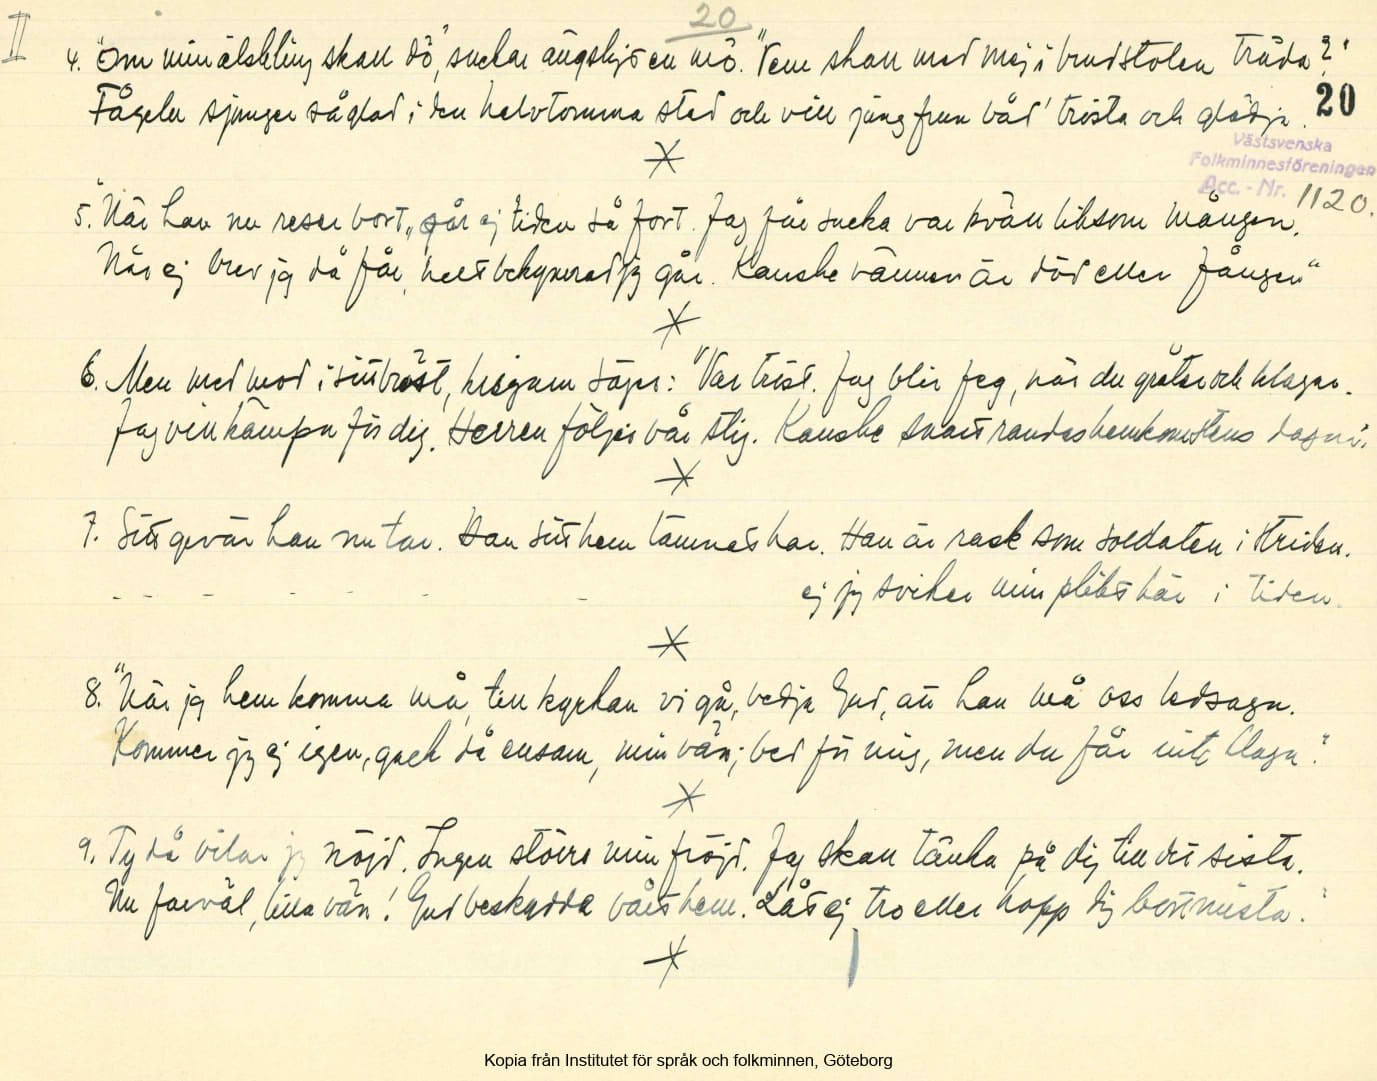 II
20
4. "Om min älskling skall dö", suckar ängsligt en mö. "Vem skall med mej i brudstolen träda?"
Fågeln sjunger så glad i den halvtomma stad och vill jungfrun båd' trösta och glädja.
20
Västsvenska
Folkminnesföreningen
Acc. - Nr. 1120.
5. "När han nu reser bort, går ej tiden så fort. Jag får sucka var kväll liksom mången.
När ej brev jag då får, helt bekymrad jg går. Kanske vännen är död eller fången"
6. Men med mod i sitt bröst, krigarn säger: "Var tröst. Jag blir feg, när du gråter och klagar.
Jag vill kämpa för dig. Herren följer vår stig. Kanske snart randas hemkomstens dagar.
7. Sitt gevär han nu tar. Han sitt hem lämnat har. Han är rask som soldaten i striden.
- - - - - - - ej jg sviker min plikt här i tiden.
8. "När jg hem komma må, till kyrkan vi gå, bedja Gud, att han må oss ledsaga.
Kommer jg ej igen, gack då ensam, min vän; bed för mig, men du får inte klaga."
9. Ty då vilar jg nöjd. Ingen störer min fröjd. Jag skall tänka på dig till det sista.
Nu farväl, lilla vän! Gud beskydda vårt hem. Låt ej tro eller hopp dig bortmista."
Kopia från Institutet för språk och folkminnen, Göteborg